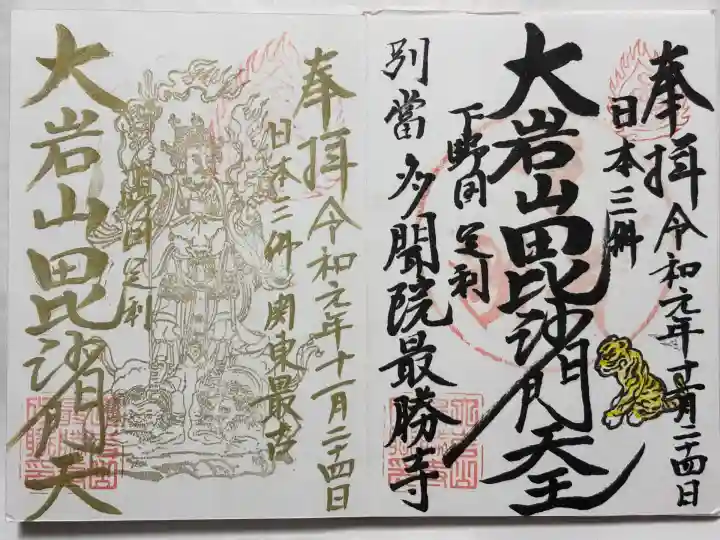 奉拝 令和元年十一月二十四日
日本三躰
大岩山毘沙門天王
下野国 足利
別當 多聞院最勝寺
奉拝 令和元年十一月二十四日
日本三躰 関東最古
大岩山毘沙門天
下野国 足利